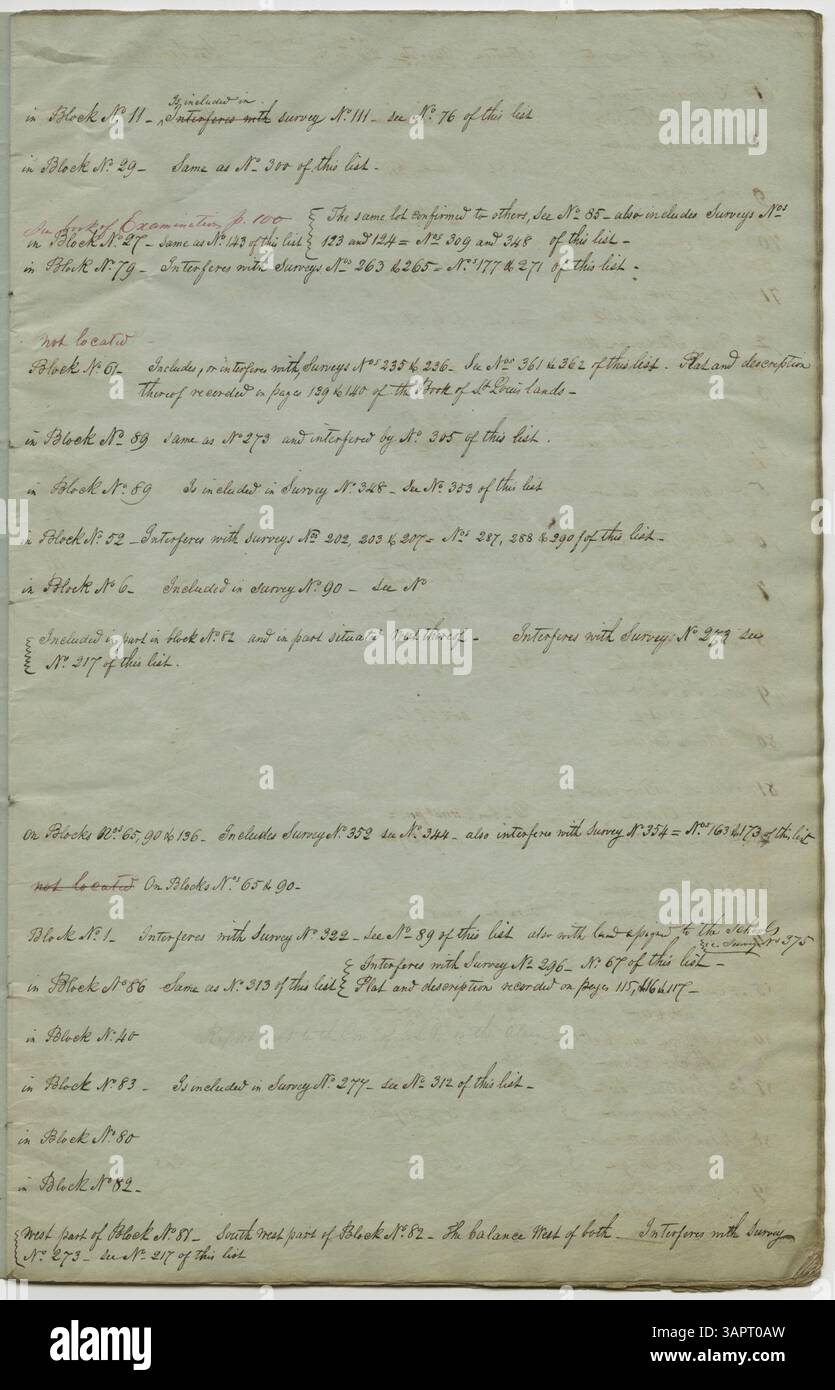 Is included in
in Block No. 11 - Interferes with survey No. 111 - see No. 76 of this list
in Block No. 29 - Same as No. 300 of this list -
see book of Examination p. 100
The same lot confirmed to others, see No. 85 - also includes Surveys Nos
in Block No. 27 - same as No. 143 of this list 123 and 124 = Nos 309 and 348 of this list -
in Block No. 79 - Interferes with Surveys Nos 263 & 265 = Nos 177 & 271 of this list -
not located -
Block No. 61 - Includes, or interferes with, Surveys Nos 235 & 236 - See Nos 361 & 362 of this list. Plat and description
thereof recorded on pages 139 & 140 of the Book of St. Louis lands -
in Block No. 89 same as No. 273 and interfered by No. 305 of this list.
in Block No. 89 Is included in Survey No. 348 - See No. 353 of this list
in Block No. 52 - Interferes with surveys Nos 202, 203 & 207 = Nos 287, 288 & 290 of this list -
in Block No. 6 - Included in survey No. 90 - see No
Included in part in block No. 82 and in part situated West thereof - Interferes with Survey No. 273 see
No. 217 of this list.
On Blocks Nos 65, 90 & 136 - Includes Survey No. 352 see No. 344 - also interferes with Survey No. 354 = Nos 163 & 173 of this list
not located On Blocks Nos 65 & 90 -
Block No. 1 - Interferes with Survey No. 322 - see No. 89 of this list also with land assigned to the Schools
see Survey No 375
Interferes with Survey No. 296 - No. 67 of this list -
in Block No. 86 Same as No. 313 of this list Plat and description recorded on pages 115, 116 & 117 -
in Block No. 40
in Block No. 83 - Is included in Survey No. 277 - see No. 312 of this list -
in Block No. 80
in Block No. 82 -
West part of Block No. 81 - South west part of Block No. 82 - the balance West of both - Interferes with Survey
No. 273 - see No. 217 of this list
alamy
Image ID: 3APT0AW
www.alamy.com